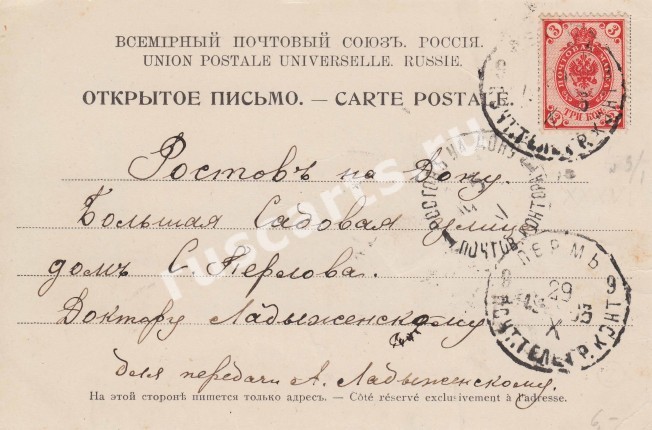 ВСЕМІРНЫЙ ПОЧТОВЫЙ СОЮЗЪ. РОССІЯ.
UNION POSTALE UNIVERSELLE. RUSSIE.
ОТКРЫТОЕ ПИСЬМО. — CARTE POSTALE.
3 3
ПОЧТОВАЯ МАРКА
ТРИ КОП.
ПОЧТ. ТЕЛЕГР. КОН
Ростовъ на Дону.
РОСТОВЪ НА ДОНУ
Большая Садовая улица
домъ С. Перлова.
ПЕРМЬ
29
X
03
ПОЧТ. ТЕЛЕГР. КОНТ
Доктору Ладыженскому
для передачи А. Ладыженскому.
На этой сторонѣ пишется только адресъ. — Côté réservé exclusivement à l'adresse.
ruscarts.ru